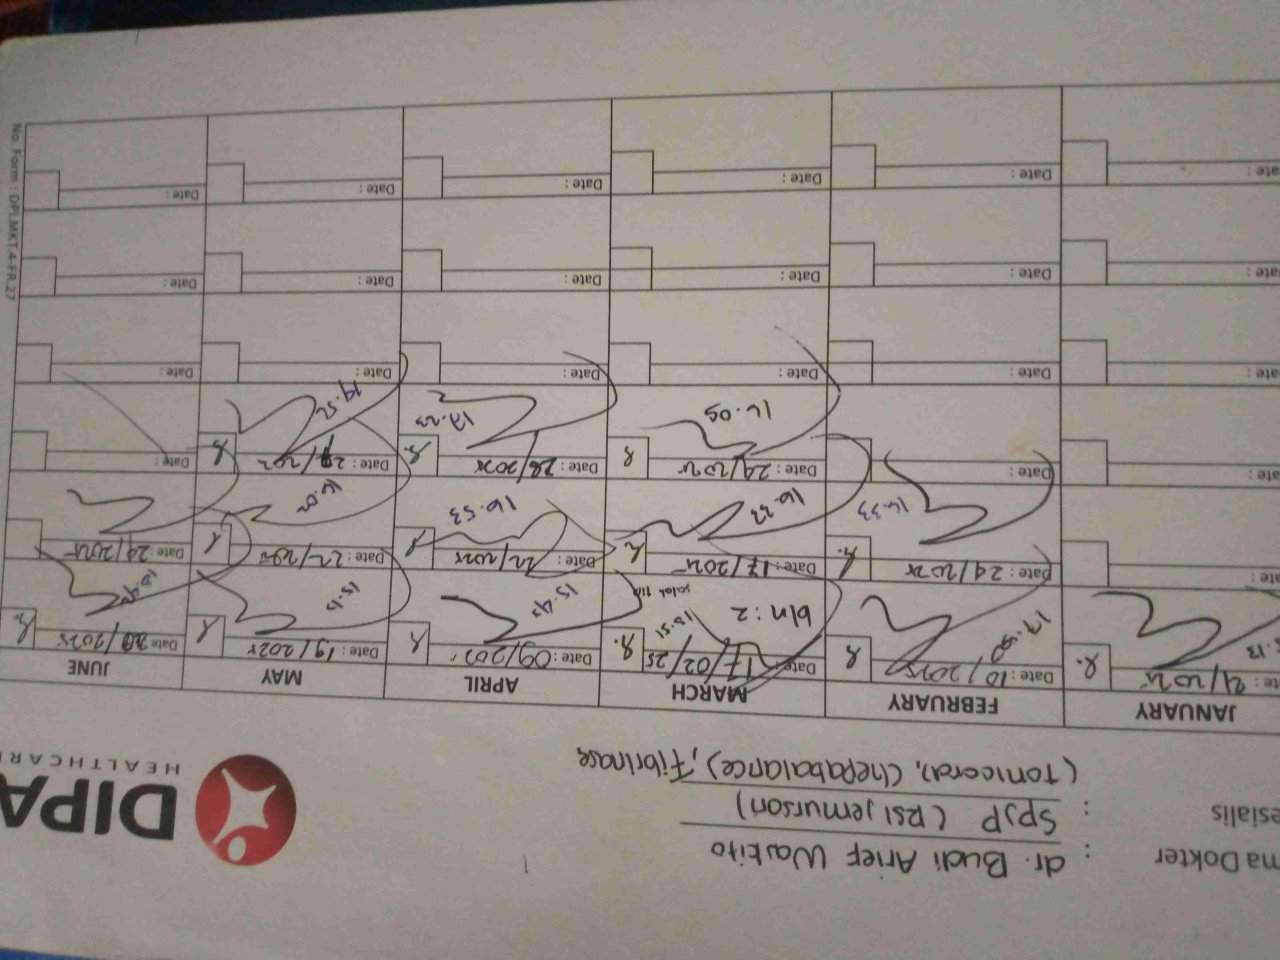 DIPA
HEALTHCAR
ma Dokter : dr. Budi Arief Waskito
esialis : SpJP (RSI jemursari)
(Tonicard, Chepabalance), Fibrinase
JANUARY
FEBRUARY
MARCH
APRIL
MAY
JUNE
ate : 21/2025
Date : 10/2025
Date : 17/02/25
Date : 09/202
Date : 19/2025
Date : /2025
.13
17.50
bln : 2
16.51
15.42
15.13
ate :
Date : 24/2025
Date : 17/2025
Date : 22/2025
Date : 22/202
Date : 24/2025
16.33
16.22
16.53
16.02
ate :
Date :
Date : 24/2025
Date : 28/2025
Date : 27/202
Date :
16.05
17.23
19.52
ate :
Date :
Date :
Date :
Date :
Date :
ate :
Date :
Date :
Date :
Date :
Date :
ate :
Date :
Date :
Date :
Date :
Date :
No. Form : DPLMKT.4-FR.27